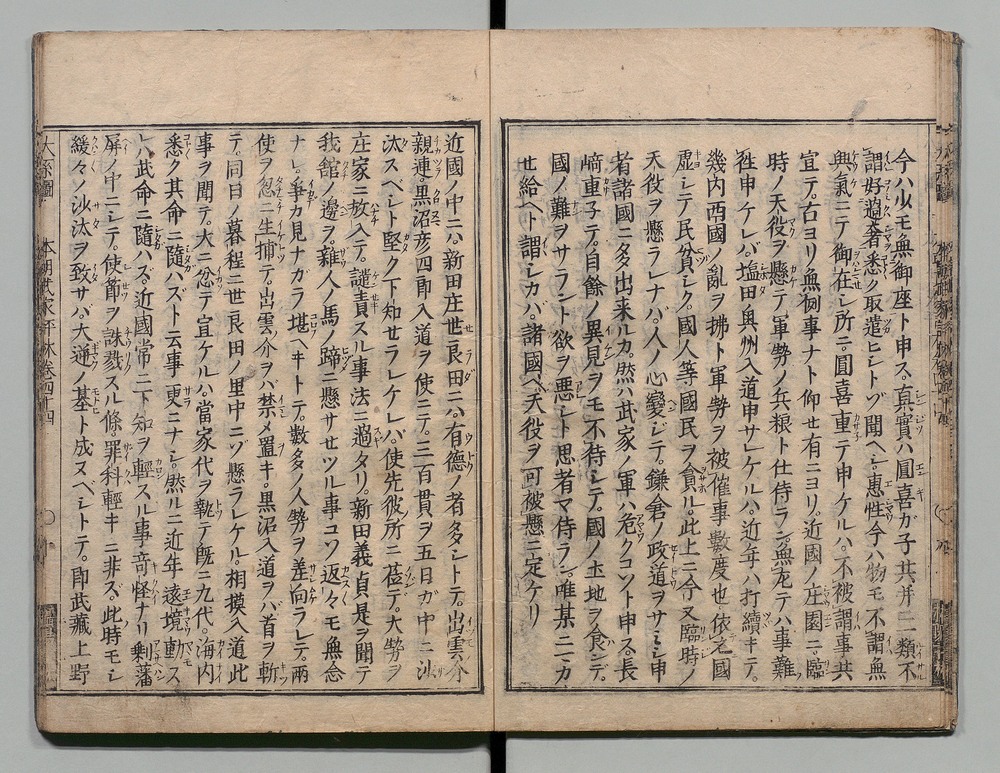 今ハ少モ無御座ト申ス。真實ハ圓喜ガ子共并ニ一類不
謂好過奢悉ク取遣ヒシトゾ聞ヘシ。惠性今ハ物モ不謂無
興氣ニテ御在シ所ニ。圓喜重テ申ケルハ。不被謂事共
宜テ。古ヨリ無例事ナト仰せ有ニヨリ。近國ノ庄園ニ。臨
時ノ天役ヲ懸テ軍勢ノ兵粮ト仕侍ラン。無左テハ事難
住申ケレバ。塩田奥州入道申サレケルハ。近年ハ打續キテ。
幾内西國ノ乱ヲ拂ト軍勢ヲ被催事數度也。依之國
虚シテ民貧レク。國人等國民ヲ貪ル。此上ニ今又臨時ノ
天役ヲ懸ラレナバ。人ノ心變ジテ。鎌倉ノ政道ヲサミシ申
者諸國ニ多出来ルカ。然ハ武家ノ軍ハ危クコソト申ス。長
﨑重テ。自餘ノ異見ヲモ不待シテ。國ノ土地ヲ食ンデ。
國ノ難ヲサラント欲ヲ悪シト思者マ侍ラン。唯某ニマカ
せ給ヘト謂シカバ。諸國ヘ天役ヲ可被懸ニ定ケリ
近國ノ中ニハ。新田庄世良田ニハ。有德ノ者多シトテ。出雲介
親連黒沼彦四郎入道ヲ使ニテ。三百貫ヲ五日ガ中ニ沙
汰スベシト堅ク下知せラレケレバ。使先彼所ニ莅テ。大勢ヲ
庄家ニ放入テ。譴責スル事法ニ過タリ。新田義貞是ヲ聞テ
我舘ノ邊ヲ。雜人ノ馬ノ蹄ニ懸サせツル事コソ返々モ無念
ナレ。爭カ見ナガラ堪ヘキトテ。數多ノ人勢ヲ差向ラレテ。兩
使ヲ忽ニ生捕テ。出雲ノ介ヲバ禁メ置キ。黒沼入道ヲバ首ヲ斬
テ。同日ノ暮程ニ世良田ノ里中ニゾ懸ラレケル。相摸入道此
事ヲ聞テ。大ニ忿テ宜ケルハ。當家代ヲ執テ既ニ九代。海内
悉ク其命ニ隨ハズト云事更ニナシ。然ルニ近年遠境動ス
レバ武命ニ隨ハズ。近國常ニ下知ヲ輕スル事竒怪ナリ。剰藩
屏ノ中ニシテ。使節ヲ誅戮スル條罪科輕キニ非ズ。此時モシ
緩々ノ沙汰ヲ致サバ。大逆ノ基ト成ヌベシトテ。即武藏上野
大系圖 本朝武家評林巻四十四